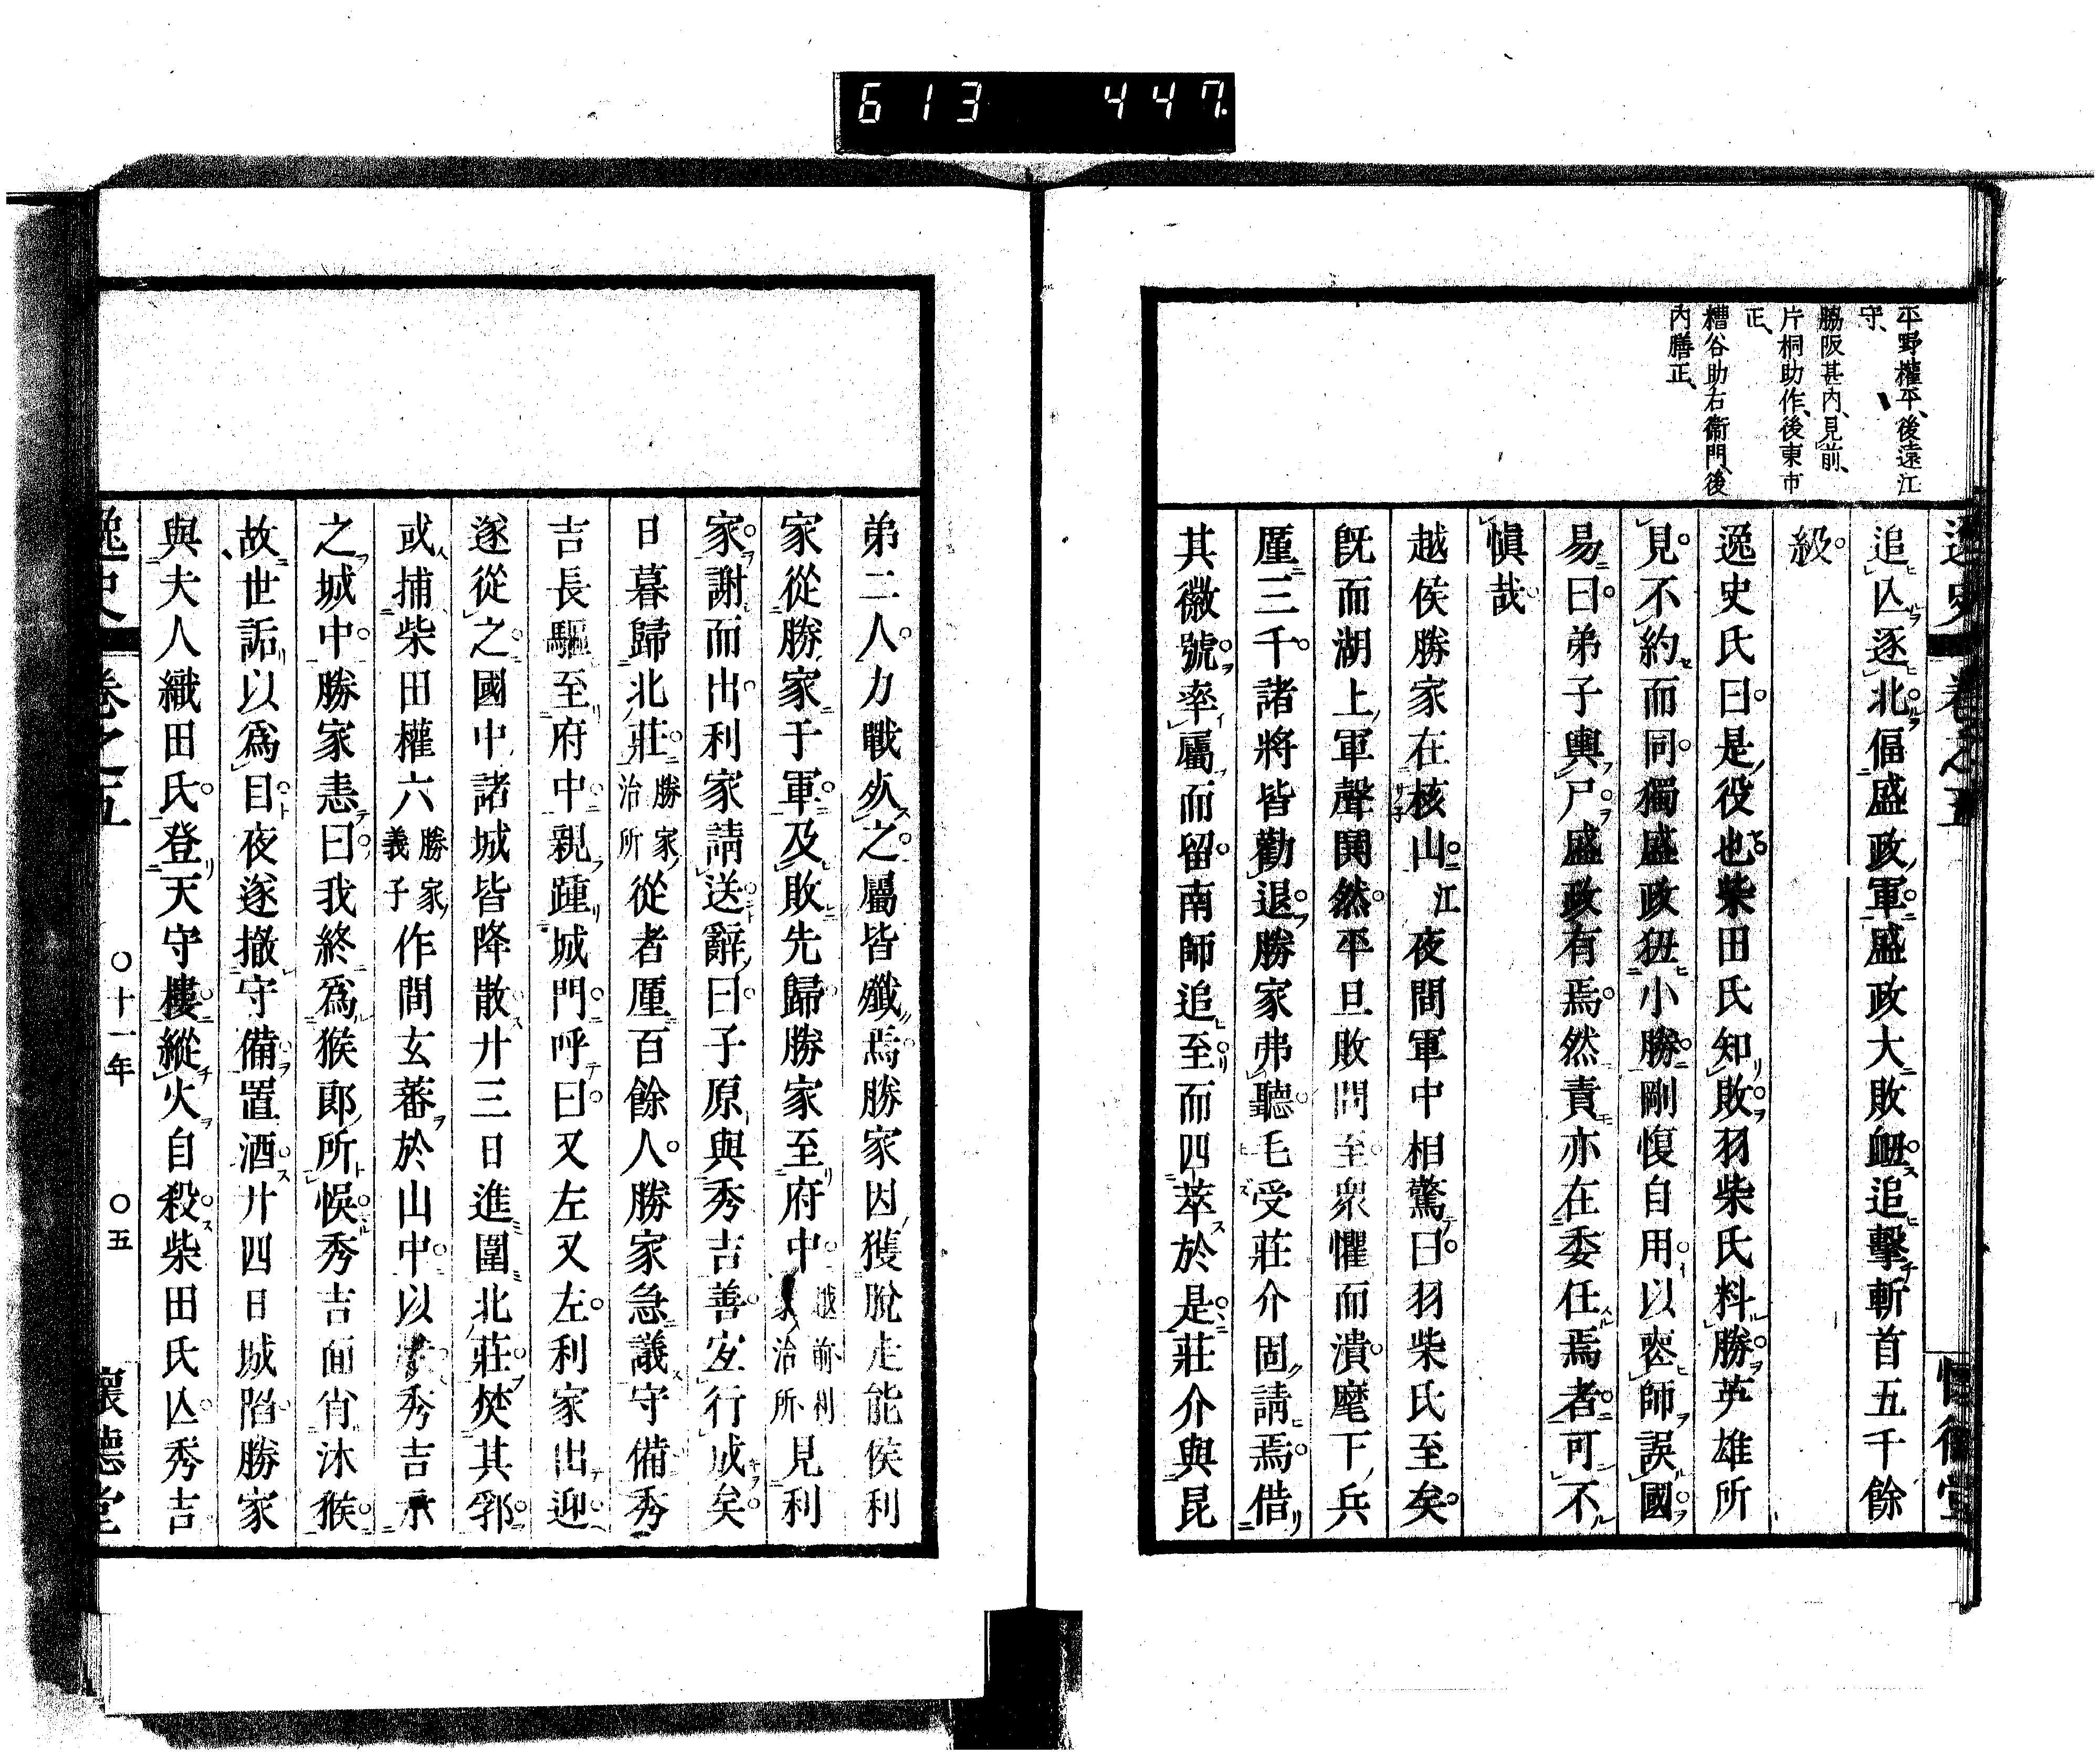 613 447
平野權平、後遠江
守、
脇阪甚內、見前、
片桐助作、後東市
正、
糟谷助右衞門、後
內膳正、
逸史 卷之五 懷德堂
追亾逐北偪盛政軍盛政大敗衂追擊斬首五千餘
級
逸史氏曰是役也柴田氏知敗羽柴氏料勝英雄所
見不約而同獨盛政狃小勝剛愎自用以喪師誤國
易曰弟子輿尸盛政有焉然責亦在委任焉者可不
愼哉
越侯勝家在椄山江夜間軍中相驚曰羽柴氏至矣
旣而湖上軍聲鬨然平旦敗問至衆懼而潰麾下兵
厪三千諸將皆勸退勝家弗聽毛受莊介固請焉借
其徽號率屬而留南師追至而四萃於是莊介與昆
弟二人力戰歿之屬皆殲焉勝家因獲脫走能侯利
家從勝家于軍及敗先歸勝家至府中越前利家治所見利
家謝而出利家請送辭曰子原與秀吉善宐行成矣
日暮歸北莊勝家治所從者厪百餘人勝家急議守備秀
吉長驅至府中親踵城門呼曰又左又左利家出迎
遂從之國中諸城皆降散廿三日進圍北莊焚其郛
或捕柴田權六勝家義子作間玄蕃於山中以秀吉示
之城中勝家恚曰我終爲猴郞所悞秀吉面肖沐猴
故世詬以爲目夜遂撤守備置酒廿四日城陷勝家
與夫人織田氏登天守樓縱火自殺柴田氏亾秀吉
逸史 卷之五 ○十一年 ○五 懷德堂